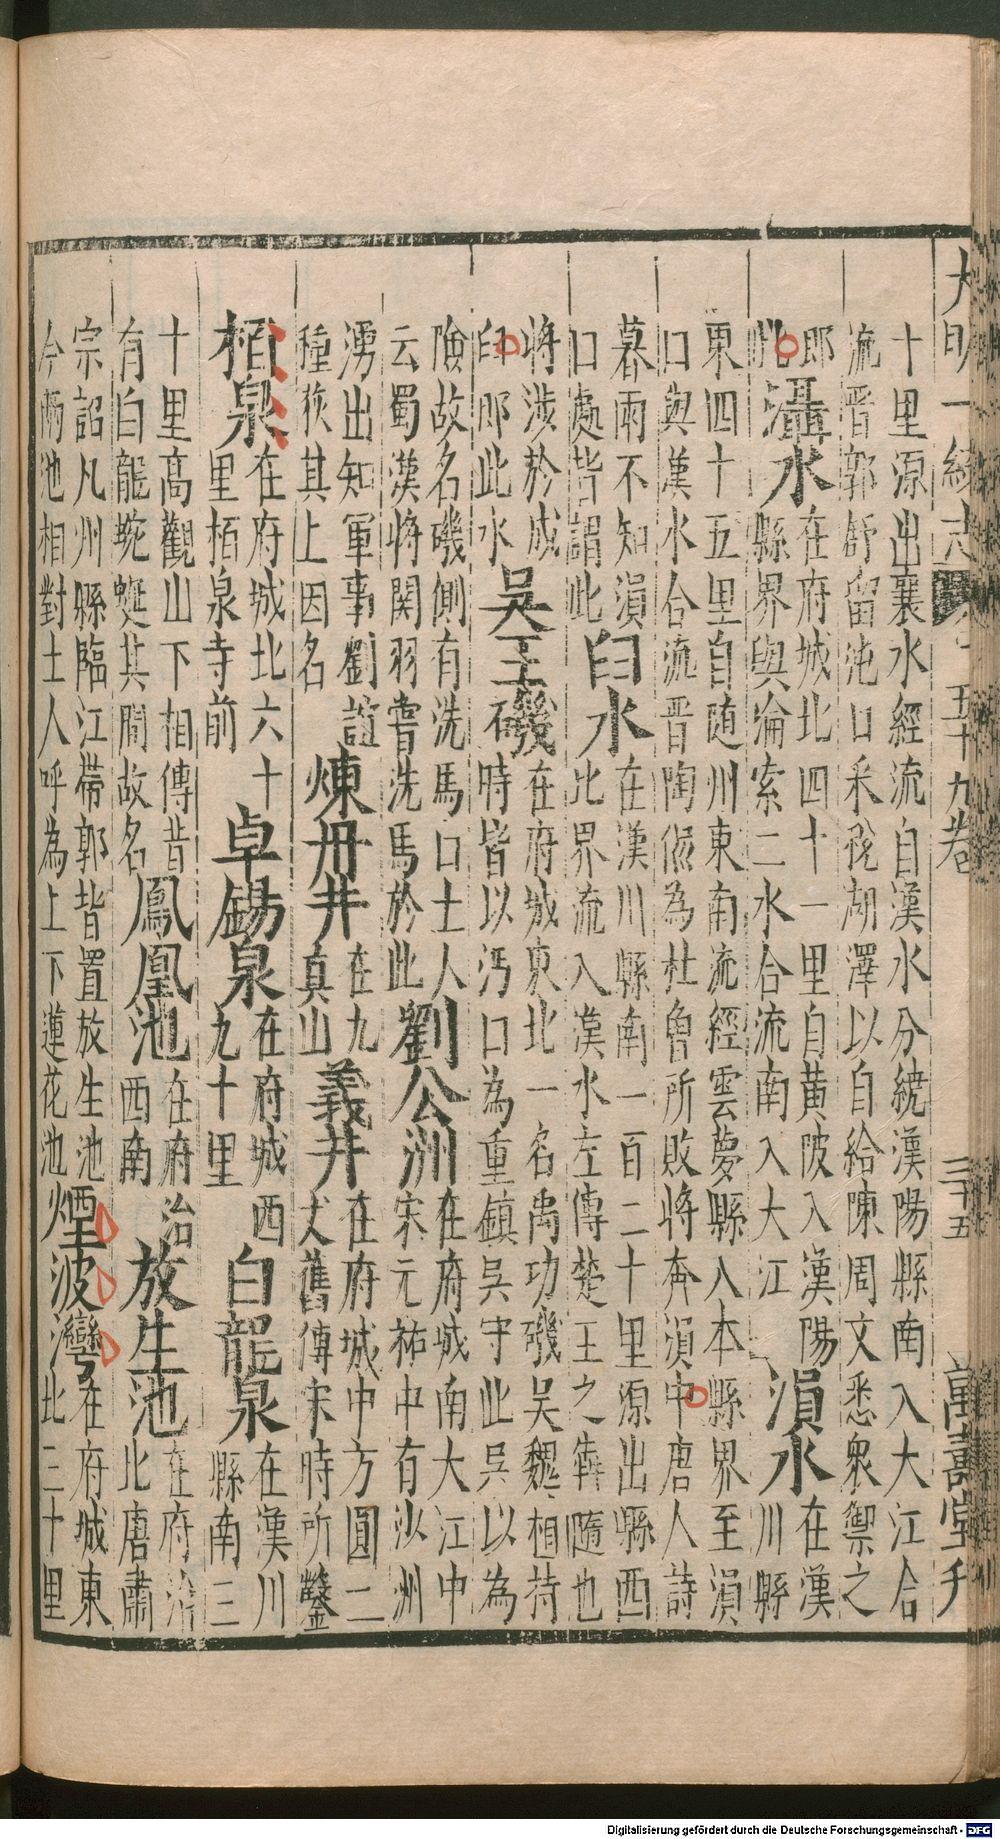 大明一統志 五十九卷 三十五 萬壽堂刊
十里源出襄水經流自漢水分繞漢陽縣南入大江合
流晉郭舒留沌口采稅湖澤以自給陳周文悉衆禦之
郎
灄水
在府城北四十一里自黃陂入漢陽
縣界與淪索二水合流南入大江
溳水
在漢
川縣
東四十五里自随州東南流經雲夢縣入本縣界至溳
口與漢水合流晉陶侃為杜曾所敗將奔溳中唐人詩
暮雨不知溳
口處皆謂此
臼水
在漢川縣南一百二十里源出縣西
北界流入漢水左傳楚王之奔隨也
將涉於成
臼郎此水
吳王磯
在府城東北一名禹功磯吳魏相持
時皆以沔口為重鎮吳守此吳以為
險故名磯側有洗馬口土人
云蜀漢將関羽嘗洗馬於此
劉公洲
在府城南大江中
宋元祐中有沙洲
湧出知軍事劉誼
種荻其上因名
煉丹井
在九
真山
義井
在府城中方圓二
丈舊傳宋時所鑿
栢泉
在府城北六十
里栢泉寺前
卓錫泉
在府城西
九十里
白龍泉
在漢川
縣南三
十里高觀山下相傳昔
有白龍蜿蜒其間故名
鳳凰池
在府治
西南
放生池
在府治
北唐肅
宗詔凡州縣臨江帶郭皆置放生池
今兩池相對土人呼為上下蓮花池
煙波灣
在府城東
北三十里
Digitalisierung gefördert durch die Deutsche Forschungsgemeinschaft - DFG